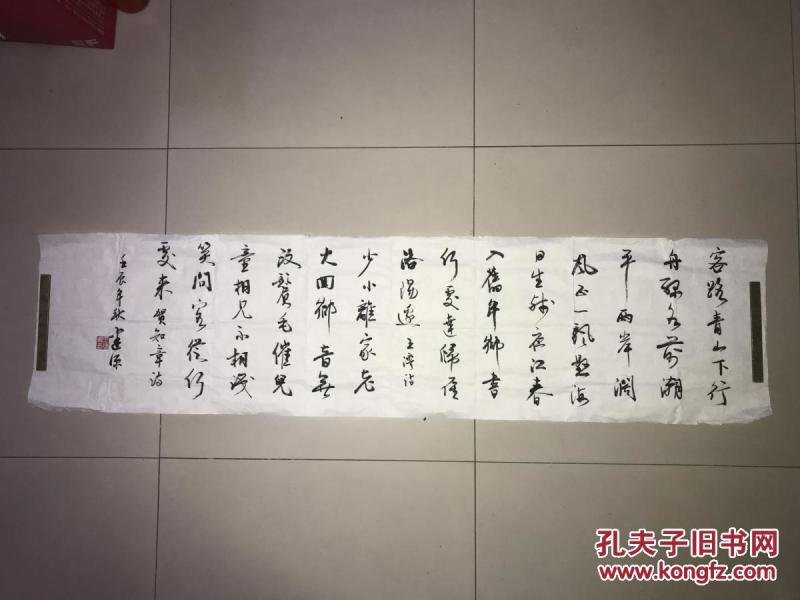 客路青山下行
舟绿水前潮
平两岸阔
风正一帆悬海
日生残夜江春
入舊年鄉書
何處達歸雁
洛陽邊 王湾诗
少小離家老
大回鄉音無
改鬢毛催兒
童相見不相識
笑問客從何
處来 贺知章诗
壬辰年秋
孔夫子旧书网
www.kongfz.com